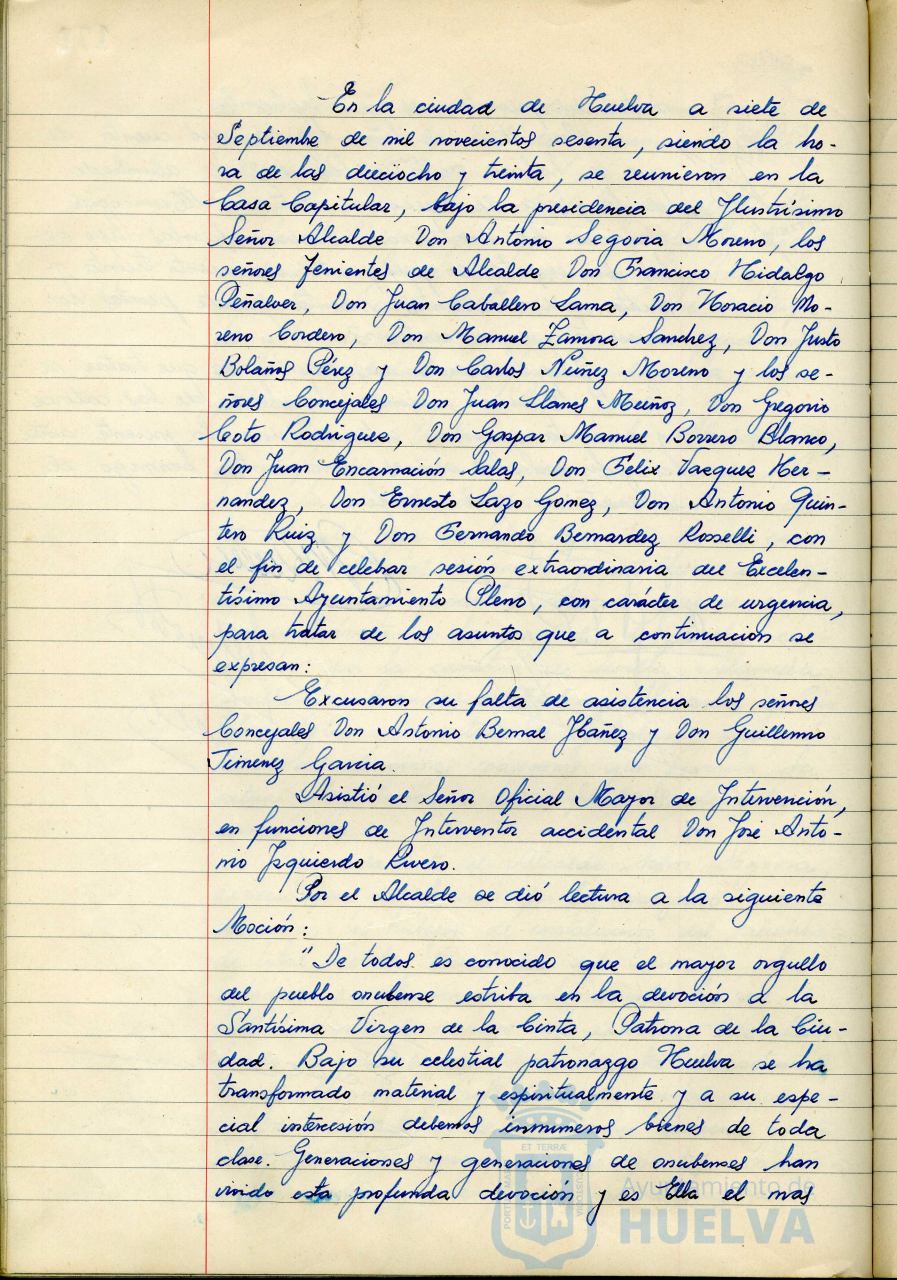 En la ciudad de Huelva a siete de
Septiembre de mil novecientos sesenta, siendo la ho-
ra de las dieciocho y treinta, se reunieron en la
Casa Capitular, bajo la presidencia del Ilustrísimo
Señor Alcalde Don Antonio Segovia Moreno, los
señores Tenientes de Alcalde Don Francisco Hidalgo
Peñalver, Don Juan Caballero Lama, Don Horacio Mo-
reno Cordero, Don Manuel Zamora Sanchez, Don Justo
Bolaños Pérez y Don Carlos Nuñez Moreno y los se-
ñores Concejales Don Juan Llanes Muñoz, Don Gregorio
Coto Rodriguez, Don Gaspar Manuel Borrero Blanco,
Don Juan Encarnación Salas, Don Felix Vazquez Her-
nandez, Don Ernesto Lazo Gomez, Don Antonio Quin-
tero Ruiz y Don Fernando Bernardez Rosselli, con
el fin de celebrar sesión extraordinaria del Excelen-
tísimo Ayuntamiento Pleno, con carácter de urgencia,
para tratar de los asuntos que a continuación se
expresan:
Excusaron su falta de asistencia los señores
Concejales Don Antonio Bernal Ibáñez y Don Guillermo
Jimenez Garcia.
Asistió el Señor Oficial Mayor de Intervención,
en funciones de Interventor accidental Don José Anto-
nio Izquierdo Rivero.
Por el Alcalde se dió lectura a la siguiente
Moción:
"De todos es conocido que el mayor orgullo
del pueblo onubense estriba en la devoción a la
Santísima Virgen de la Cinta, Patrona de la Ciu-
dad. Bajo su celestial patronazgo Huelva se ha
transformado material y espiritualmente y a su espe-
cial intercesión debemos inumeros bienes de toda
clase. Generaciones y generaciones de onubenses han
vivido esta profunda devoción y es Ella el mas
ET TERRÆ
PORTUS MARIS
CUSTODIA
Ayuntamiento de
HUELVA